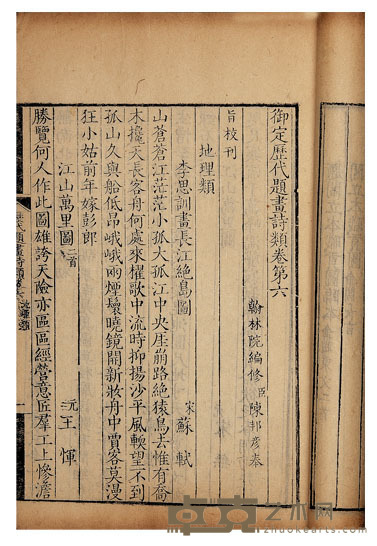 御定歷代題畫詩類卷第六
翰林院編修臣陳邦彥奉
旨校刊
地理類
李思訓畫長江絕島圖
宋 蘇軾
山蒼蒼江茫茫大孤小孤江中央崖崩路絕猿鳥去惟有喬
木攙天長客舟何處來櫂歌中流時抑揚沙平風軟望不到
孤山久與船低昂峨峨兩煙鬟曉鏡開新妝舟中賈客莫漫
狂小姑前年嫁彭郎
江山萬里圖二首
元 王惲
勝覽何人作此圖雄誇天險亦區區經營意匠羣工上慘澹